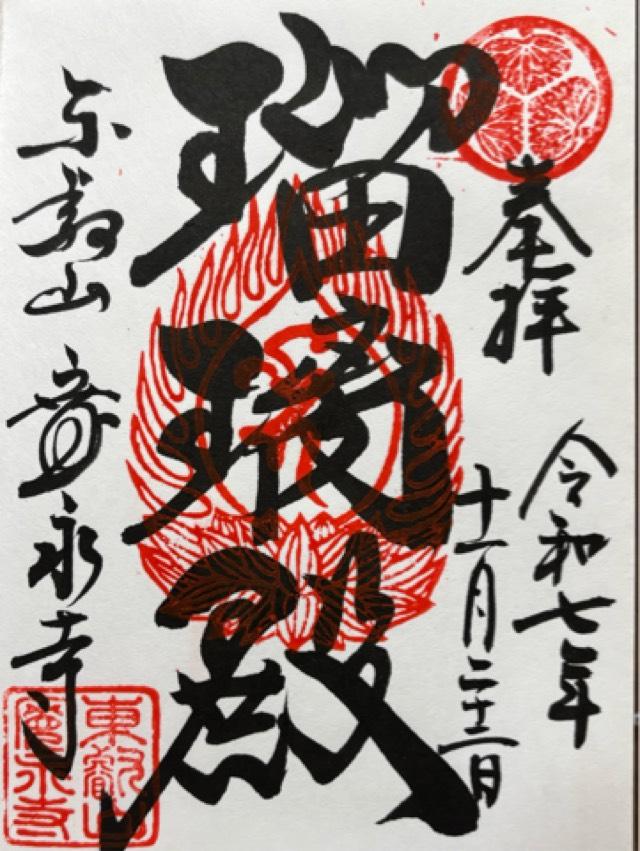 奉拝
令和七年
十一月二十二日
瑠璃殿
東叡山 寛永寺
東叡山
寛永寺